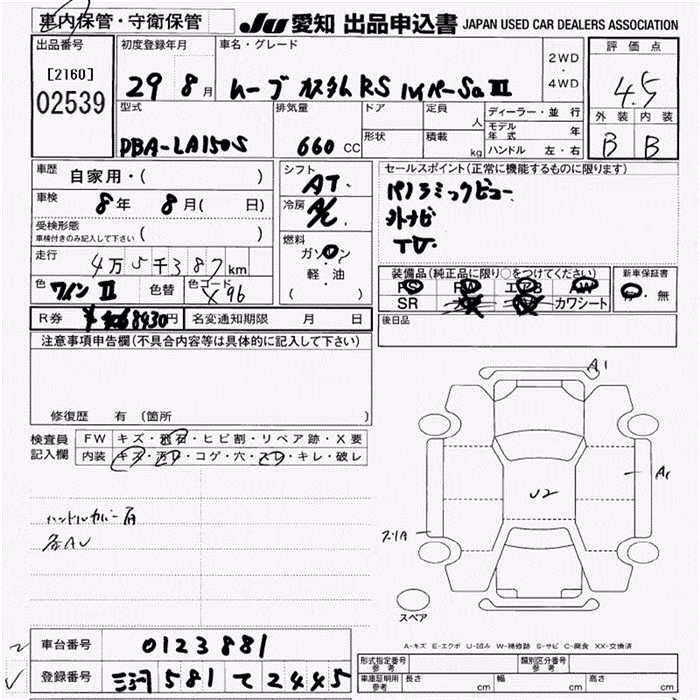 車内保管・守衛保管 JU 愛知 出品申込書 JAPAN USED CAR DEALERS ASSOCIATION
出品番号 初度登録年月 車名・グレード 2WD ・ 4WD 評価点
[2160] 29 8月 ムーブ カスタム RS ハイパーSA III 4.5
02539 型式 排気量 ドア 定員 人 ディーラー・並行 外装 内装
DBA-LA150S 660 CC 形状 積載 kg モデル年式 年 B B
ハンドル 左・右
車歴 自家用・( ) シフト AT. セールスポイント(正常に機能するものに限ります)
車検 8年 8月( 日) 冷房 A/C パノラミックビュー
受検形態 外ナビ
車検付きのみ記入して下さい ( ) 燃料 TV.
走行 4万5千387km ガソリン 装備品(純正品に限り○をつけてください) 新車保証書
色 ワイン II 色替 色コード 軽・油 PS PW エアB AW 有・無
( ) SR カワシート
R券 8930円 名変通知期限 月 日 後日品
注意事項申告欄(不具合内容等は具体的に記入して下さい)
A1
修復歴 有 (箇所 )
検査員 FW キズ・飛石・ヒビ割・リペア跡・X要
記入欄 内装 キズ・汚レ・コゲ・穴・スレ・キレ・破レ
A1
U2
ハンドルカバー有
各AU
スリA
スペア
A-キズ E-エクボ U-凹み W-補修跡 S-サビ C-腐食 XX-交換済
車台番号 0123881
形式指定番号 参考 類別区分番号 参考
登録番号 三河 581 て 2445
車庫証明用 参考 長さ cm 幅 cm 高さ cm